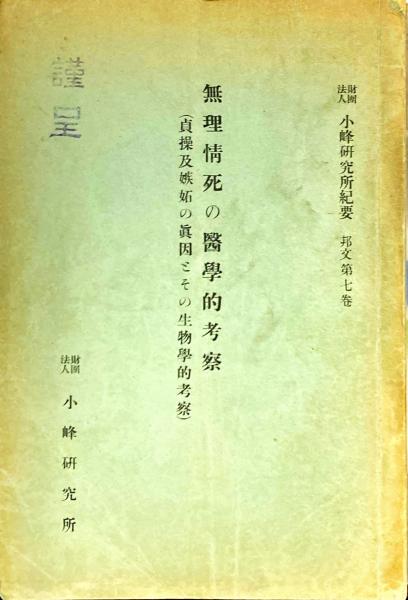 財團法人 小峰研究所紀要 邦文第七卷
無理情死の醫學的考察
(貞操及嫉妬の眞因とその生物學的考察)
謹呈
財團法人 小峰研究所